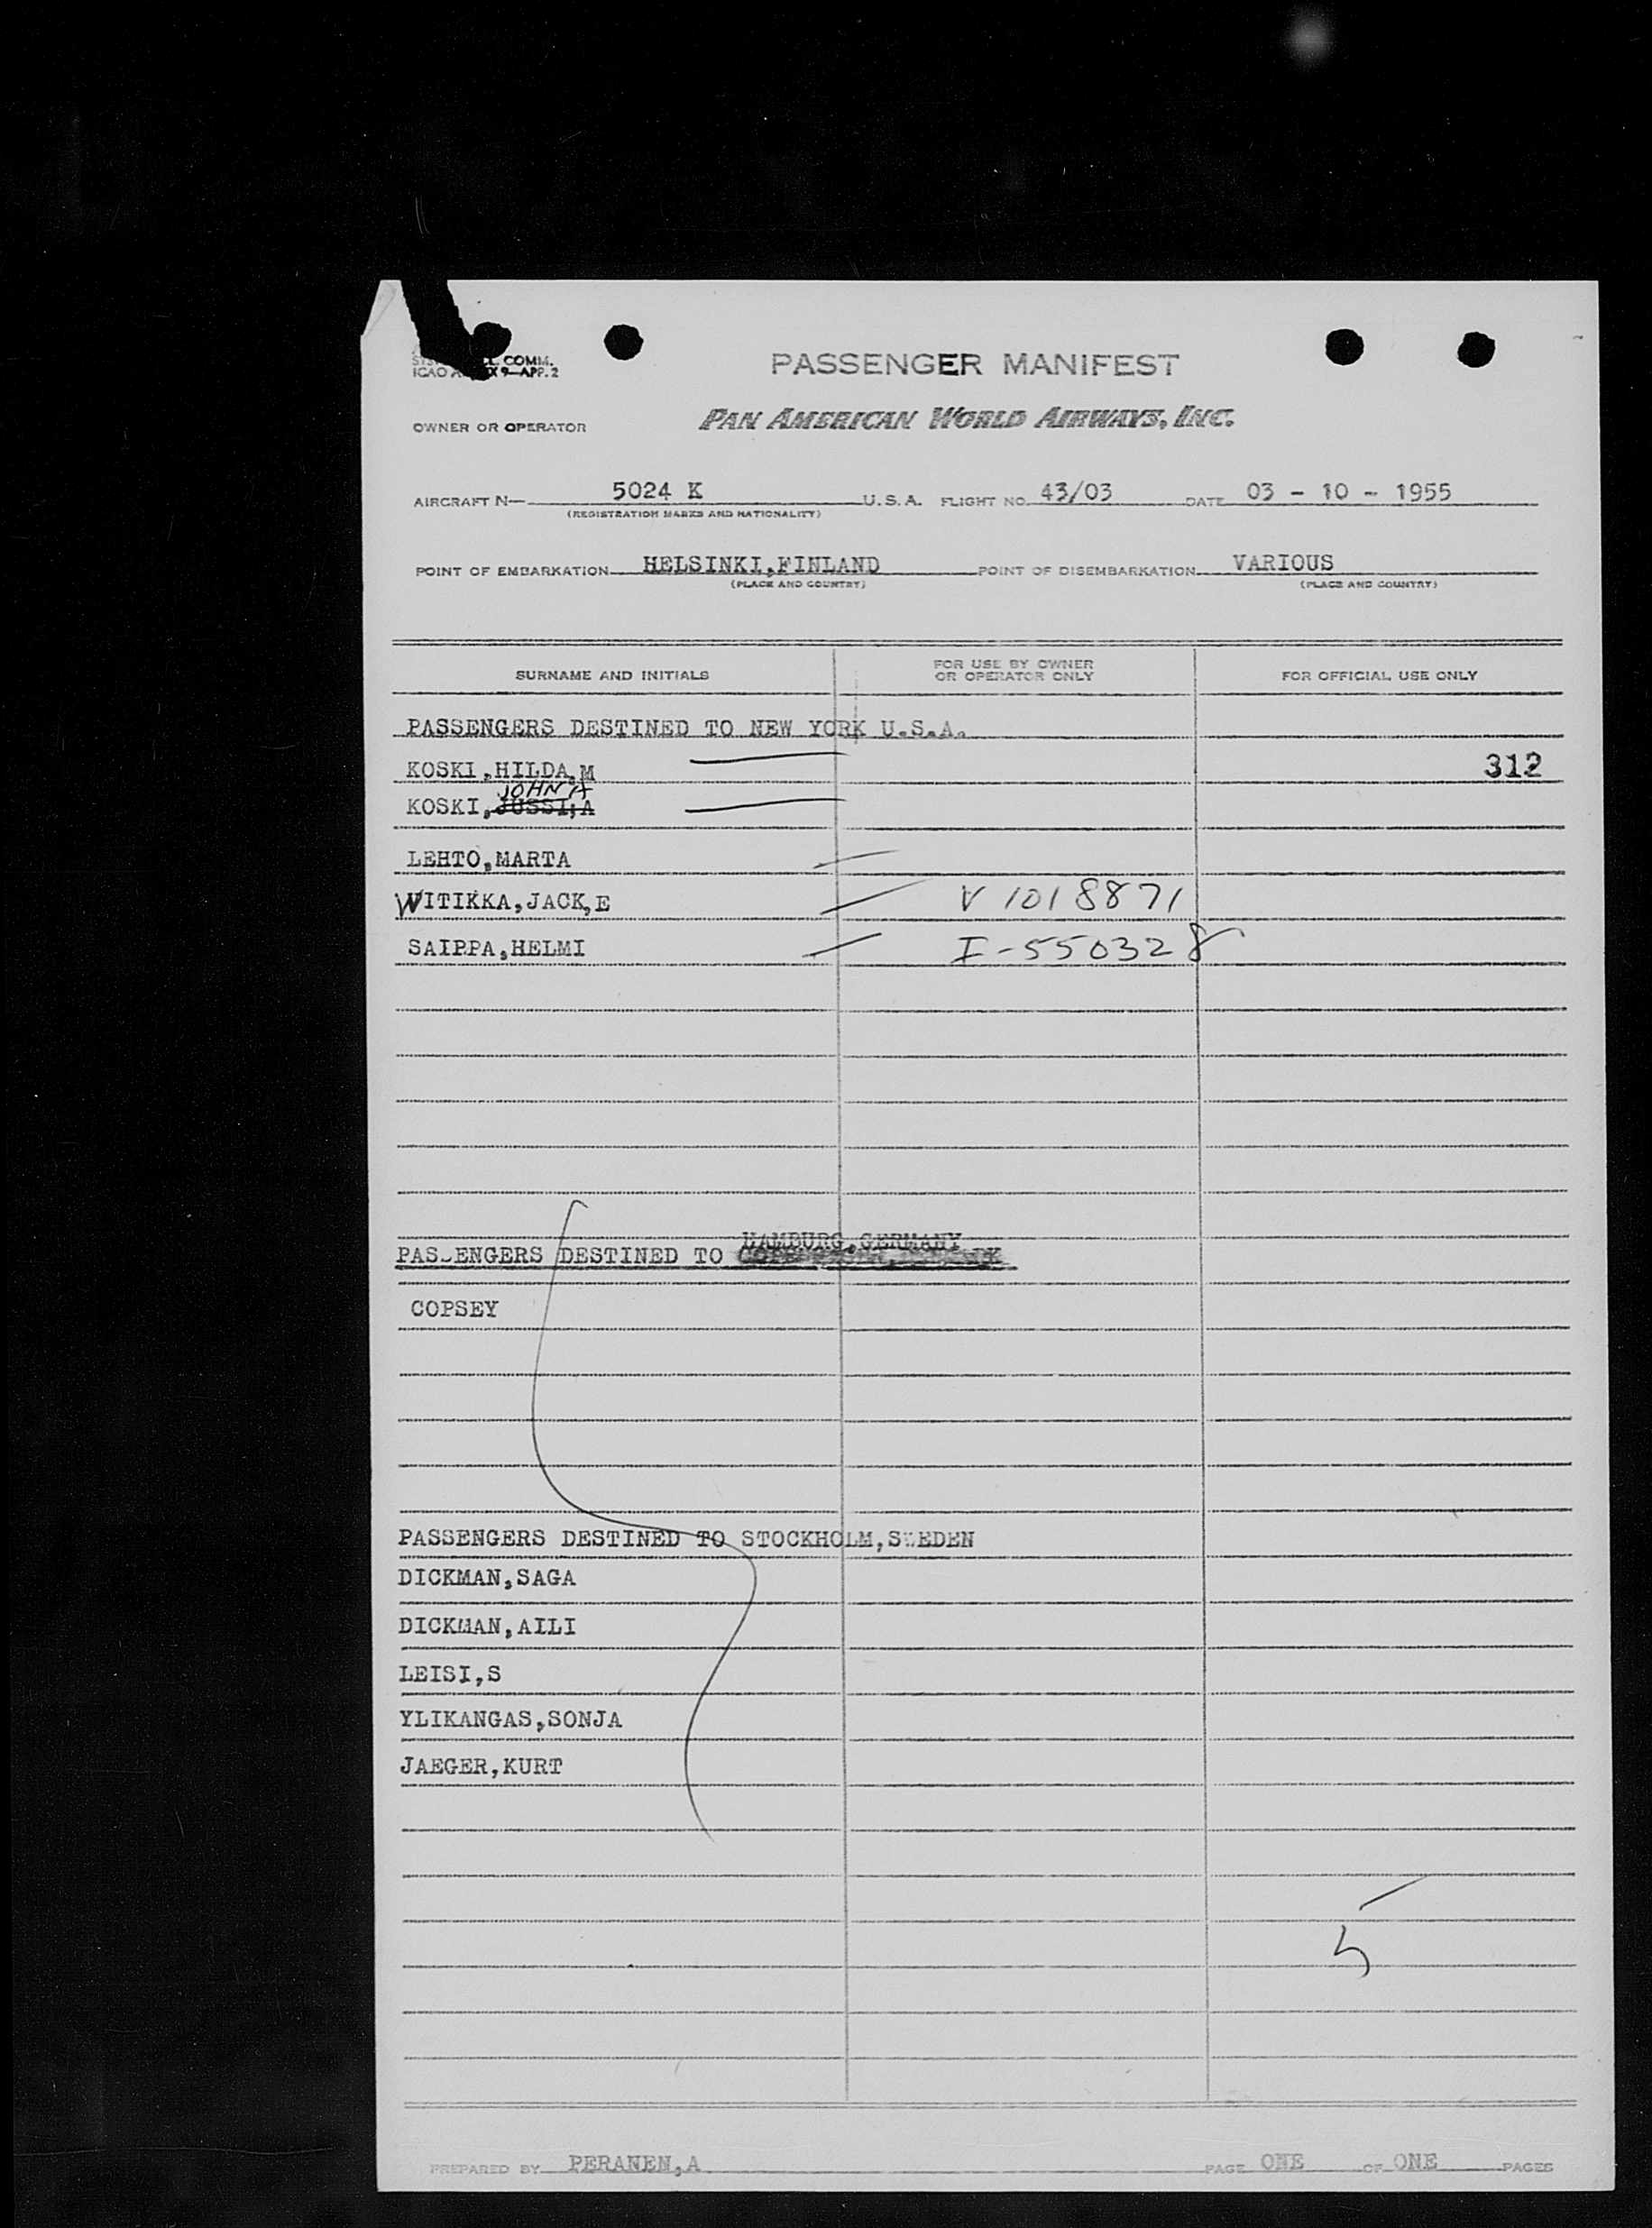 L. COMM.
ICAO A X 9—APP. 2
PASSENGER MANIFEST
OWNER OR OPERATOR PAN AMERICAN WORLD AIRWAYS, INC.
AIRCRAFT N— 5024 K U.S.A. FLIGHT NO. 43/03 DATE 03 - 10 - 1955
(REGISTRATION MARKS AND NATIONALITY)
POINT OF EMBARKATION HELSINKI,FINLAND POINT OF DISEMBARKATION VARIOUS
(PLACE AND COUNTRY) (PLACE AND COUNTRY)
SURNAME AND INITIALS FOR USE BY OWNER OR OPERATOR ONLY FOR OFFICIAL USE ONLY
PASSENGERS DESTINED TO NEW YORK U.S.A.
KOSKI,HILDA,M 312
JOHN A
KOSKI,JUSSI,A
LEHTO,MARTA
WITIKKA,JACK,E V 1018871
SAIPPA,HELMI I-550328
HAMBURG,GERMANY
PASSENGERS DESTINED TO
COPSEY
PASSENGERS DESTINED TO STOCKHOLM,SWEDEN
DICKMAN,SAGA
DICKMAN,AILI
LEISI,S
YLIKANGAS,SONJA
JAEGER,KURT
5
PREPARED BY PERANEN,A PAGE ONE OF ONE PAGES